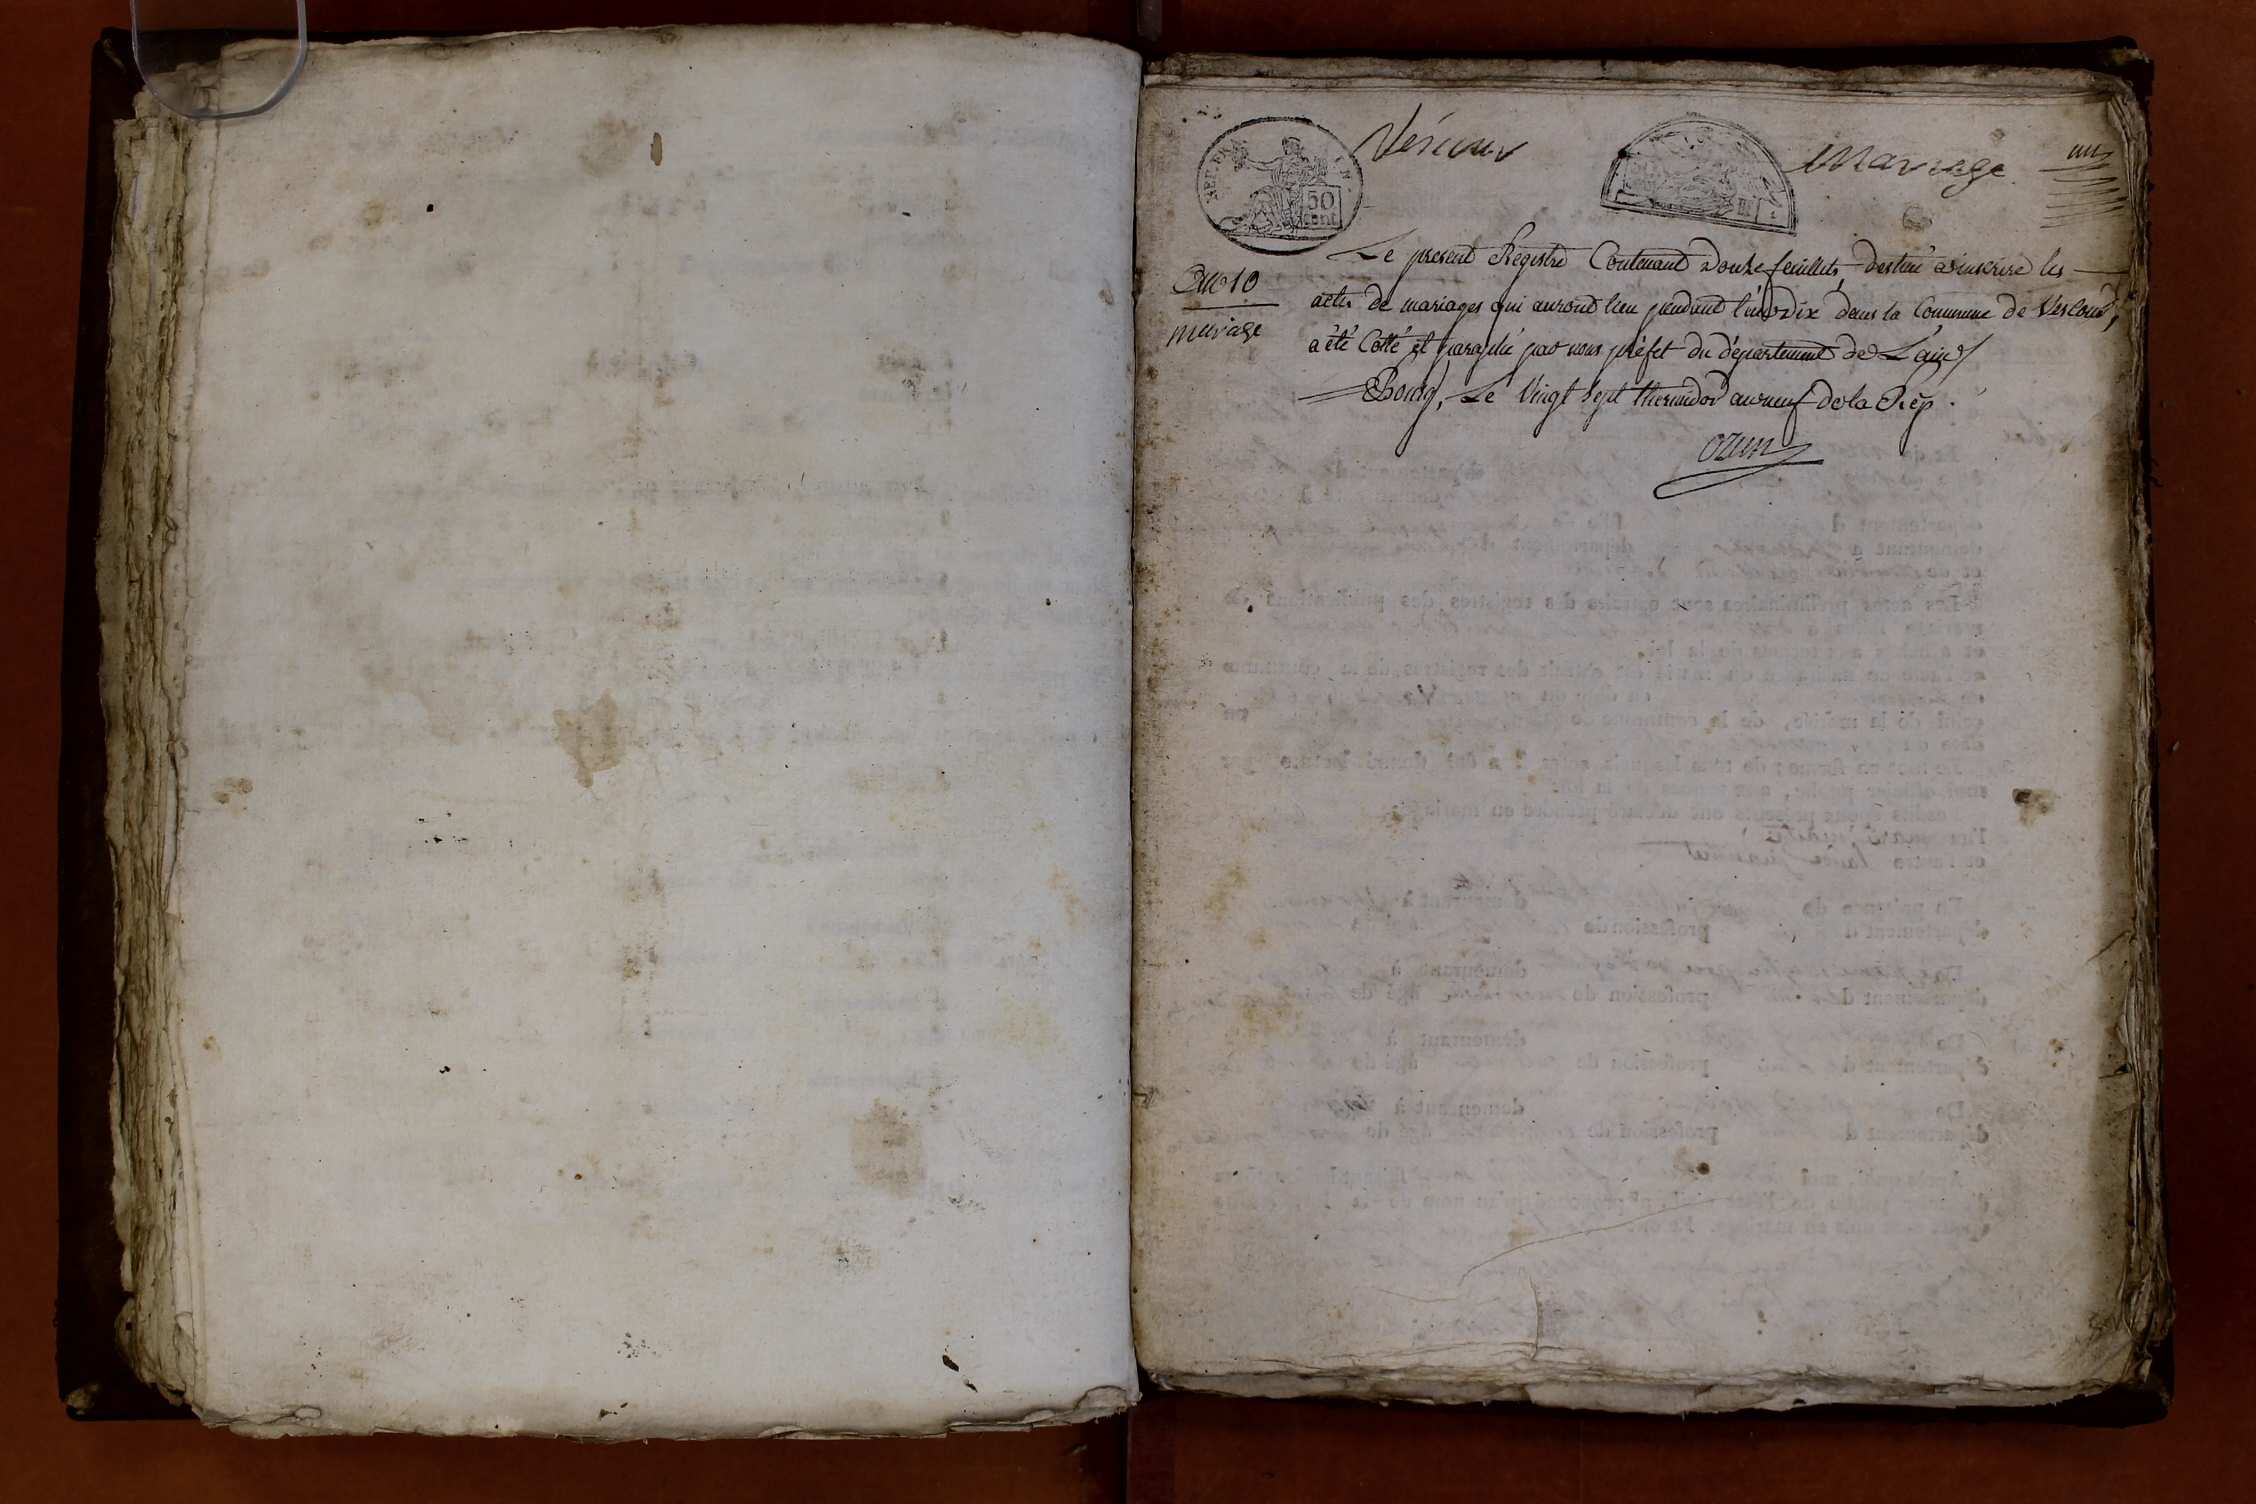 Mariage
un
REP. FRA
50
cent
An 10
mariage
Le present Registre Contenant douze feuillets, destiné à inscrire les
actes de mariages qui auront lieu pendant l'an dix dans la Commune de Versoud,
a été Cotté et paraphé par nous préfet du département de L'ain
Bourg, Le Vingt Sept thermidor an neuf de la Rép.
ozun